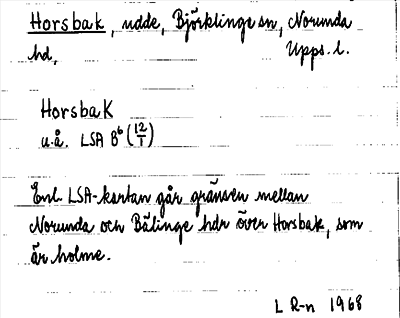 Horsbak, udde, Björklinge sn, Norunda
hd, Upps. l.
Horsbak
u.å. LSA B6 (12/1)
Enl. LSA-kartan går gränsen mellan
Norunda och Bälinge hdr över Horsbak, som
är holme.
L R-n 1968